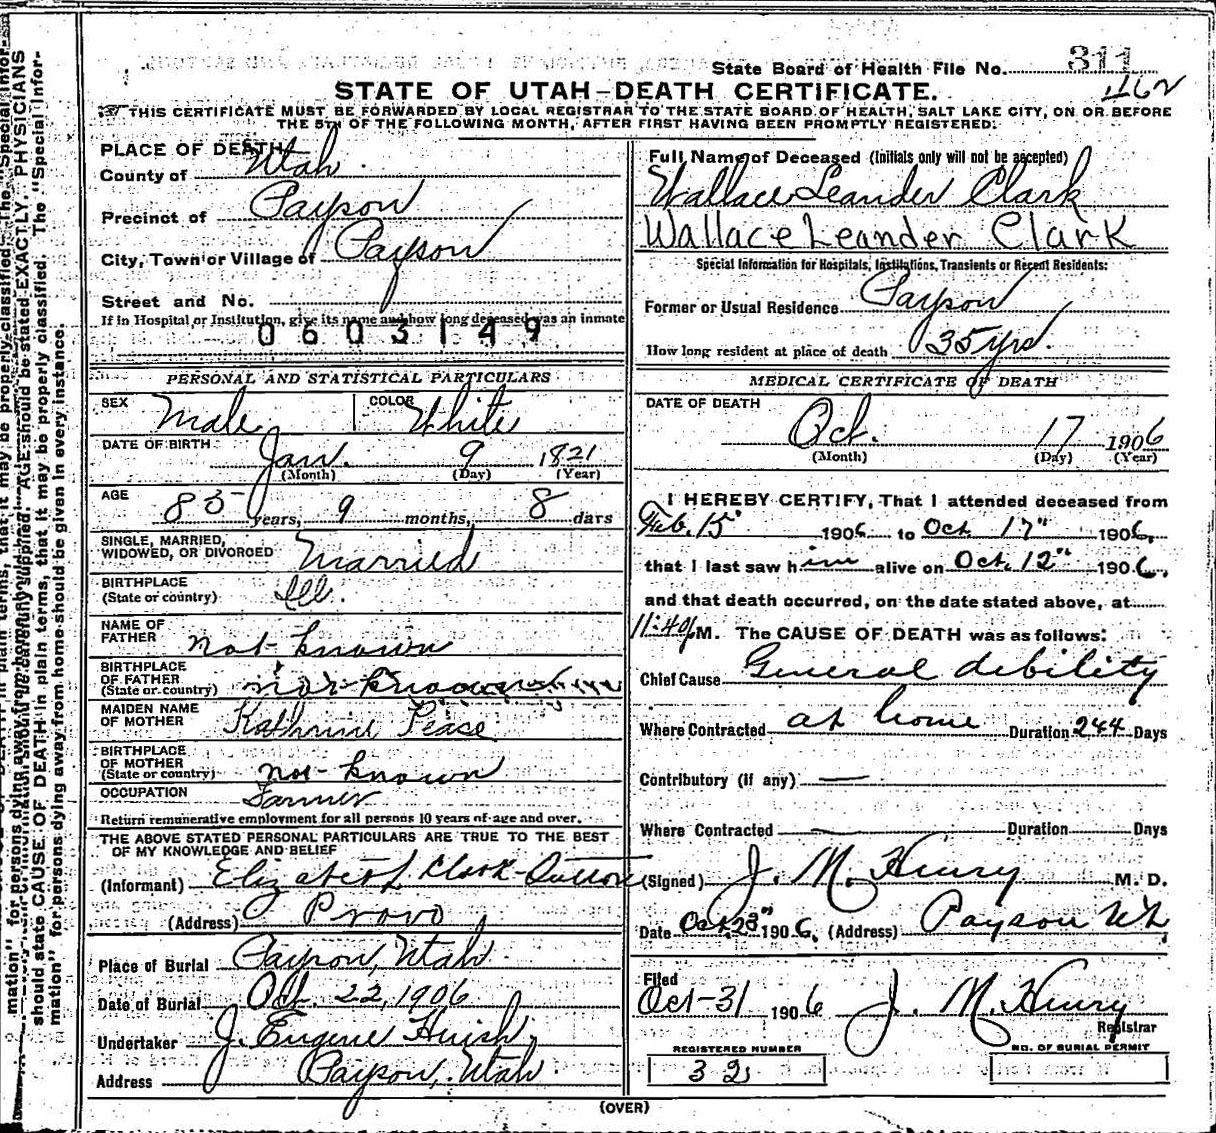 State Board of Health File No. 311
462
STATE OF UTAH-DEATH CERTIFICATE.
THIS CERTIFICATE MUST BE FORWARDED BY LOCAL REGISTRAR TO THE STATE BOARD OF HEALTH, SALT LAKE CITY, ON OR BEFORE
THE 5TH OF THE FOLLOWING MONTH, AFTER FIRST HAVING BEEN PROMPTLY REGISTERED:
PLACE OF DEATH
County of Utah.
Precinct of Payson
City, Town or Village of Payson
Street and No.
If in Hospital or Institution, give its name and how long deceased was an inmate
0603149
PERSONAL AND STATISTICAL PARTICULARS
SEX Male COLOR White
DATE OF BIRTH Jan. 9 1821
(Month) (Day) (Year)
AGE
85 years, 9 months, 8 days
SINGLE, MARRIED,
WIDOWED, OR DIVORCED Married
BIRTHPLACE
(State or country) Ill.
NAME OF
FATHER not known
BIRTHPLACE
OF FATHER
(State or country) not known
MAIDEN NAME
OF MOTHER Katherine Pease
BIRTHPLACE
OF MOTHER
(State or country) not known
OCCUPATION Farmer
Return remunerative employment for all persons 10 years of age and over.
THE ABOVE STATED PERSONAL PARTICULARS ARE TRUE TO THE BEST
OF MY KNOWLEDGE AND BELIEF
(Informant) Elizabeth Clark
(Address) Provo
Place of Burial Payson, Utah.
Date of Burial Oct. 22, 1906
Undertaker J. Eugene Huish,
Address Payson, Utah.
Full Name of Deceased (Initials only will not be accepted)
Wallace Leander Clark
Wallace Leander Clark
Special Information for Hospitals, Institutions, Transients or Recent Residents:
Former or Usual Residence Payson
How long resident at place of death 35 yrs.
MEDICAL CERTIFICATE OF DEATH
DATE OF DEATH
Oct. 17 1906
(Month) (Day) (Year)
I HEREBY CERTIFY, That I attended deceased from
Feb. 15" 1906 to Oct. 17" 1906,
that I last saw him alive on Oct. 12" 1906.
and that death occurred, on the date stated above, at
11:40 M. The CAUSE OF DEATH was as follows:
Chief Cause General debility
Where Contracted at home Duration 244 Days
Contributory (if any) —
Where Contracted — Duration — Days
(Signed) J. M. Henry M. D.
Date Oct. 23" 1906, (Address) Payson Ut.
Filed
Oct-31 1906 J. M. Henry
Registrar
REGISTERED NUMBER NO. OF BURIAL PERMIT
32
(OVER)
mation" for persons dying away
should state CAUSE OF DEATH in plain terms, that it may be properly classified. The "Special Infor-
mation" for persons dying away from home should be given in every instance.
AGE should be stated EXACTLY. PHYSICIANS